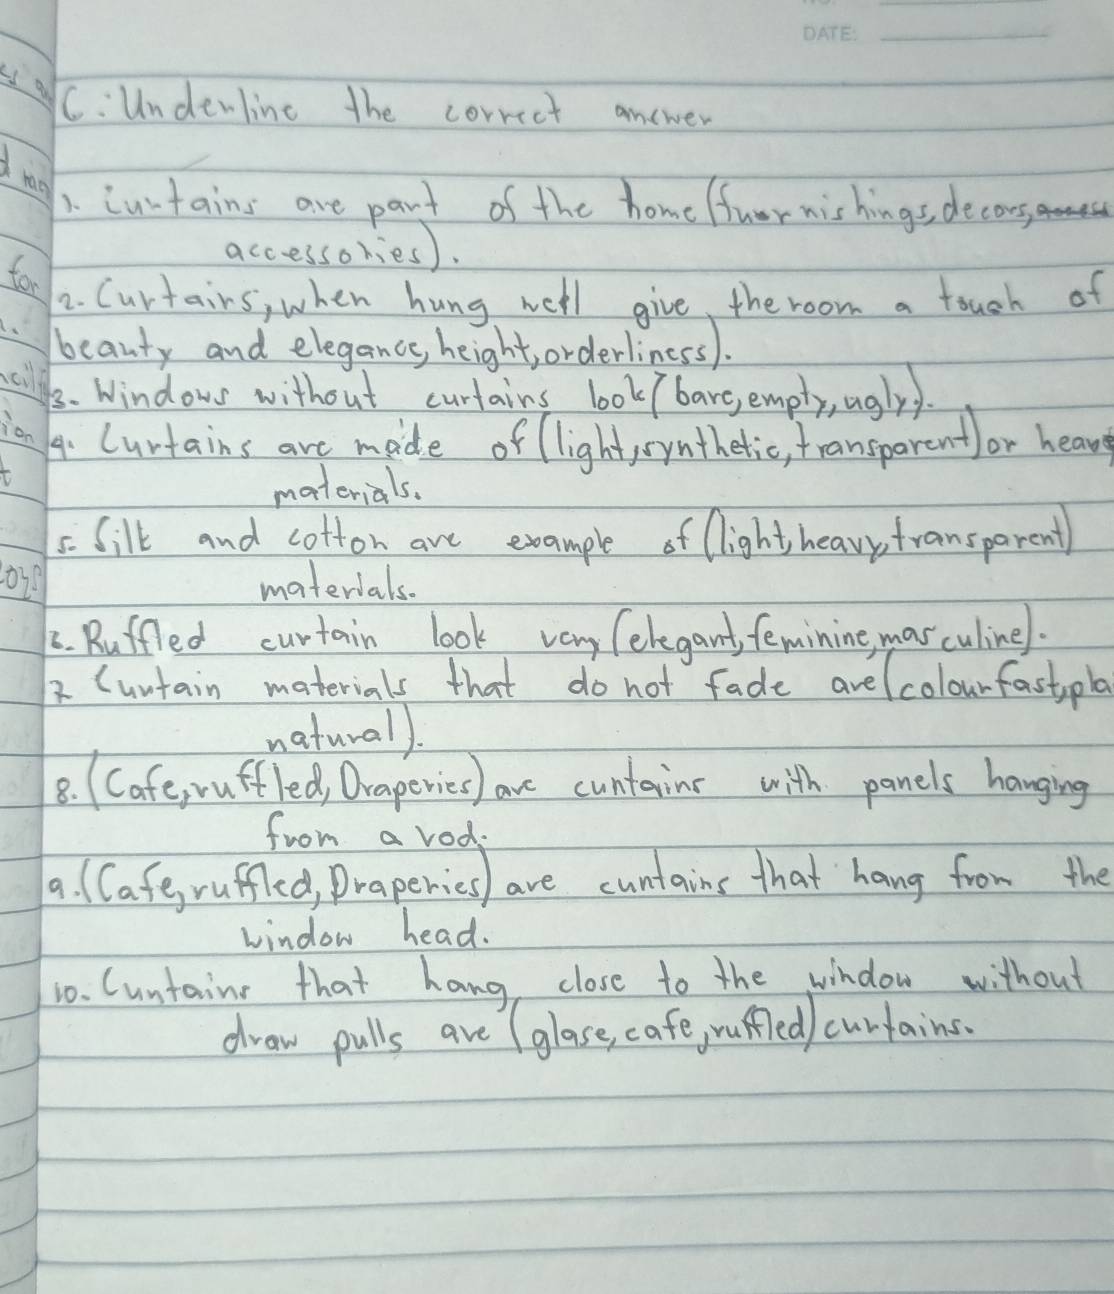 DATE:
C. Underline the correct answer
1. Curtains are part of the home (furnishings, decors,
accessories).
2. Curtains, when hung well give the room a touch of
beauty and elegance, height, orderliness).
3. Windows without curtains look (bare, empty, ugly).
4. Curtains are made of (light, synthetic, transparent) or heavy
materials.
5. Silk and cotton are example of (light, heavy, transparent)
materials.
6. Ruffled curtain look very (elegant, feminine, masculine).
7. Curtain materials that do not fade are (colourfast, pla
natural).
8. (Cafe, ruffled, Draperies) are curtains with panels hanging
from a rod.
9. (Cafe, ruffled, Draperies) are curtains that hang from the
window head.
10. Curtains that hang close to the window without
draw pulls are (glase, cafe, ruffled) curtains.
for
ion